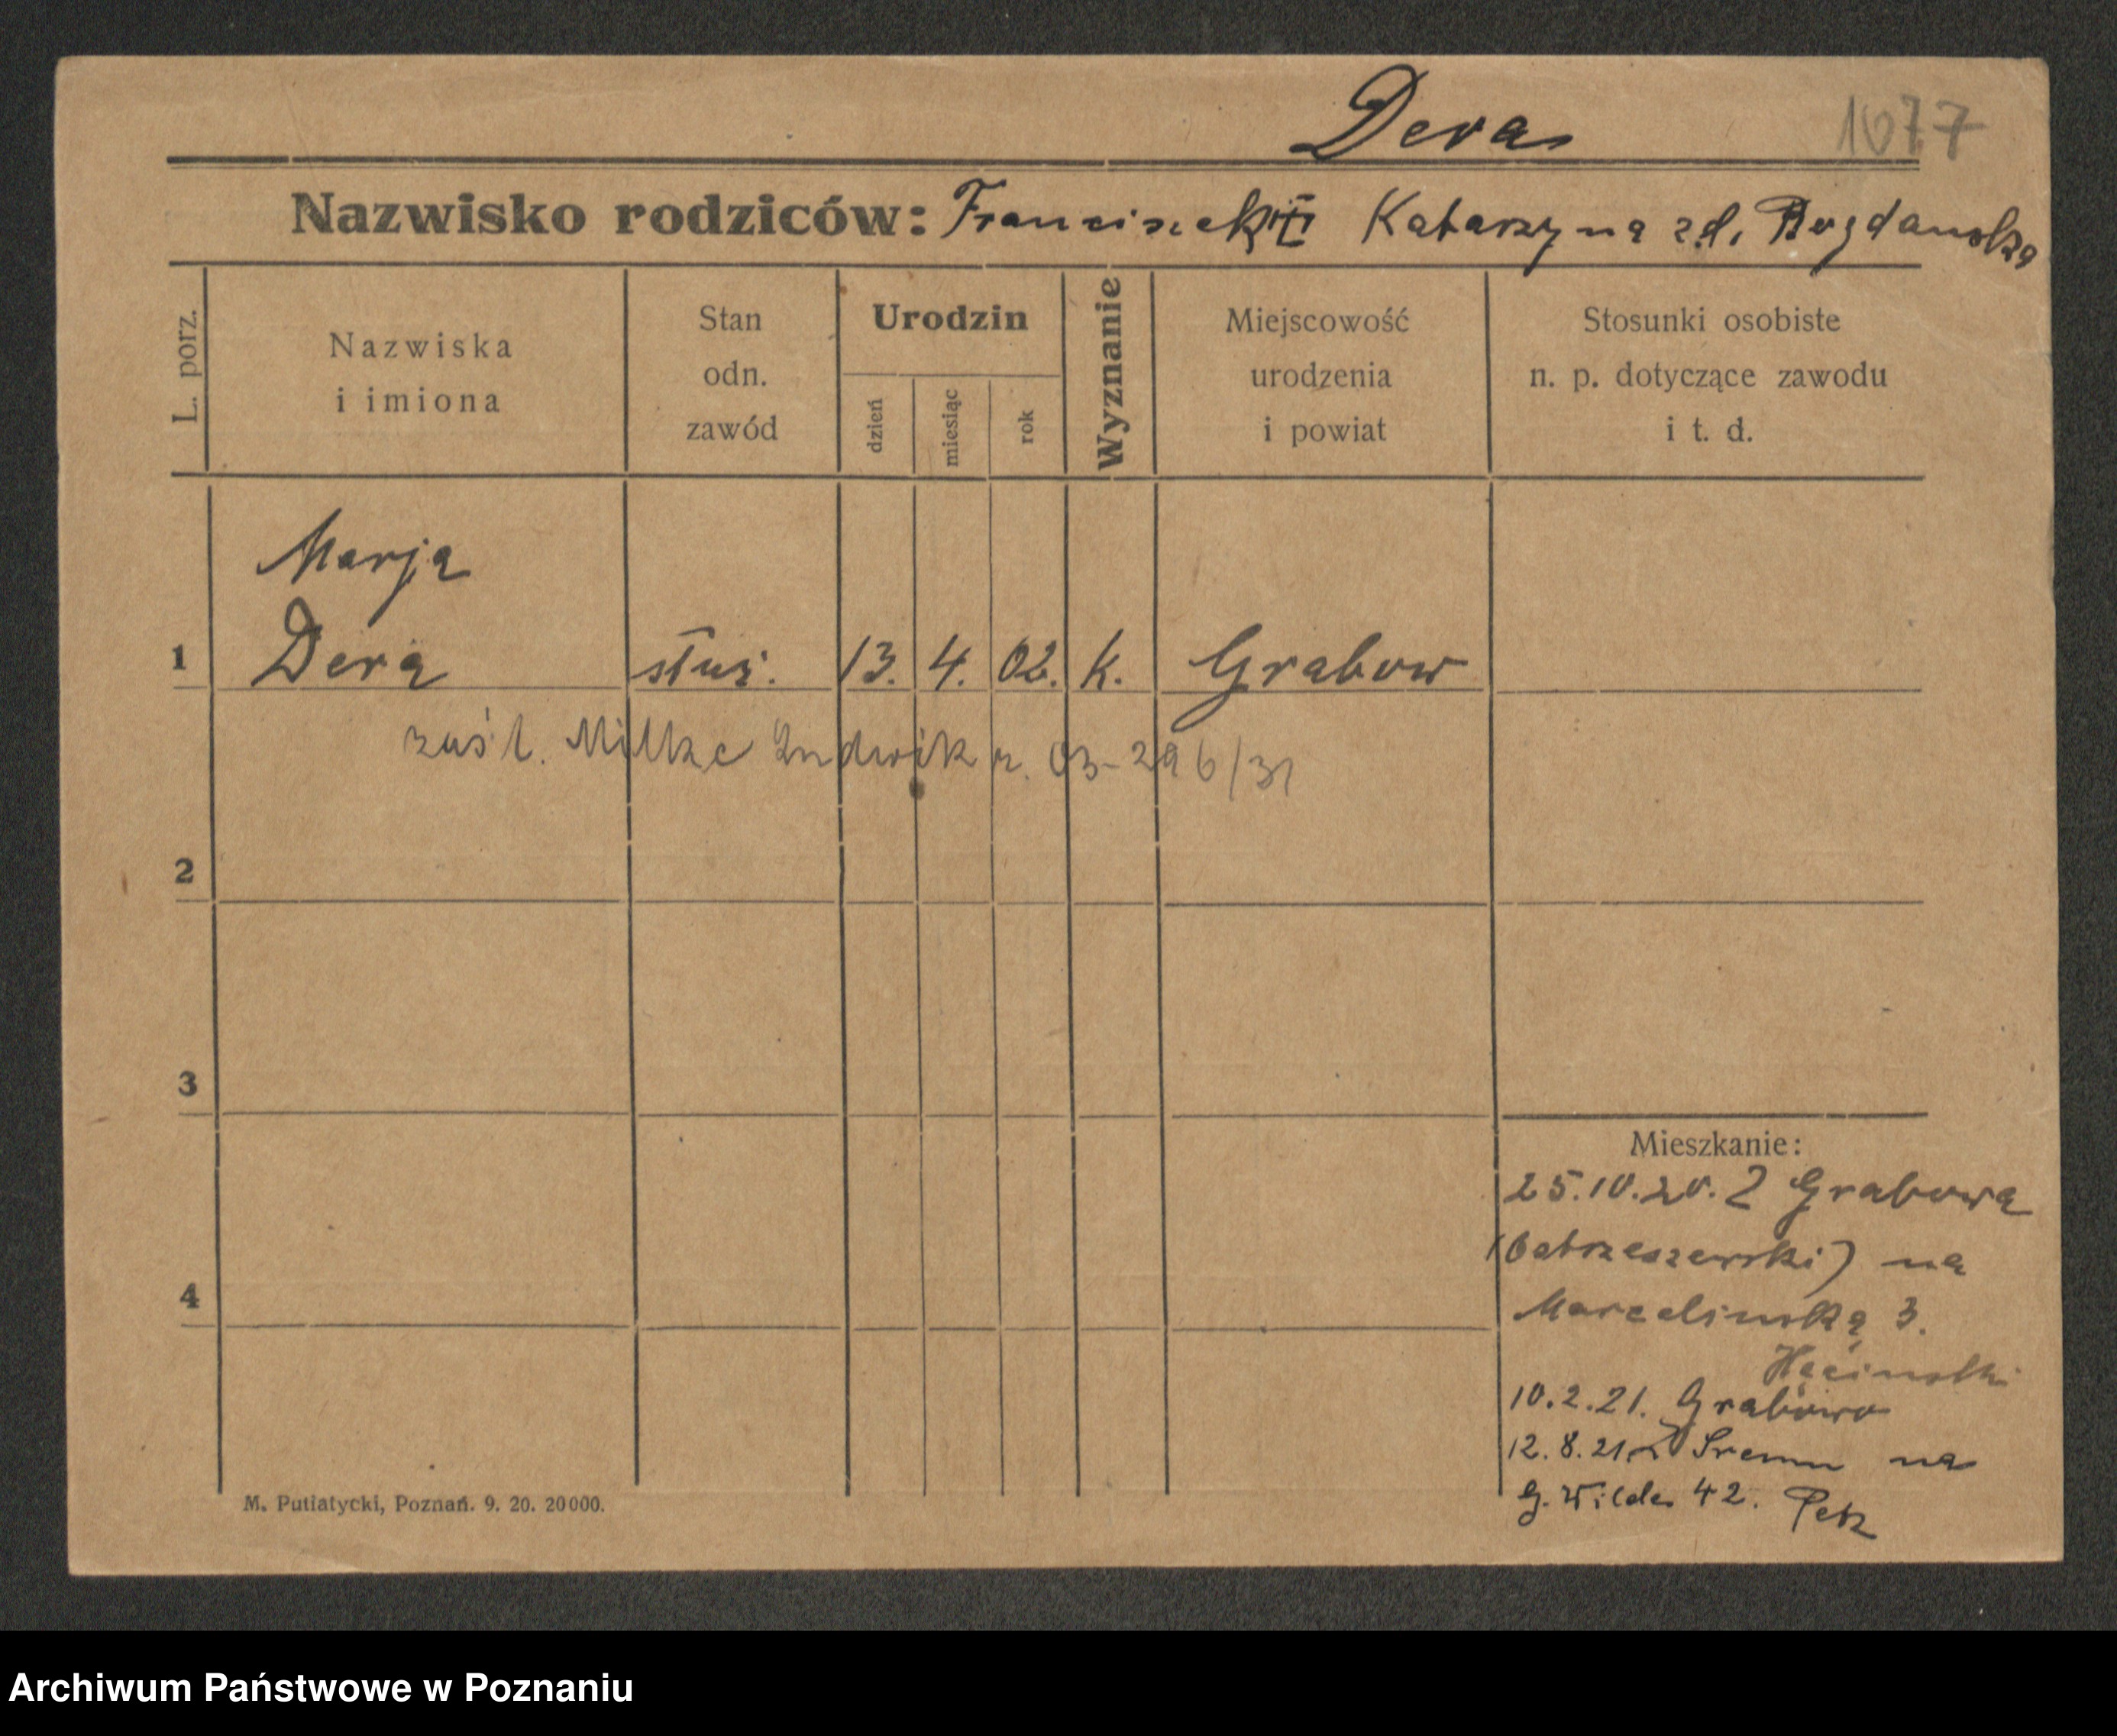 Dera 1677
Nazwisko rodziców: Franciszek i Katarzyna z d. Bogdańska
L. porz.
Nazwiska
i imiona
Stan
odn.
zawód
Urodzin
dzień
miesiąc
rok
Wyznanie
Miejscowość
urodzenia
i powiat
Stosunki osobiste
n. p. dotyczące zawodu
i t. d.
Marja
1 Dera służ. 13. 4. 02. k. Grabow
zaśl. Ludwik r. 03-296/31
2
3
4
Mieszkanie:
25.10.20. Z Grabowa
na
Marcelińską 3.
10.2.21. Grabowo
12.8.21 z Śremu na
G. Wilda 42.
M. Putiatycki, Poznań. 9. 20. 20000.
Archiwum Państwowe w Poznaniu